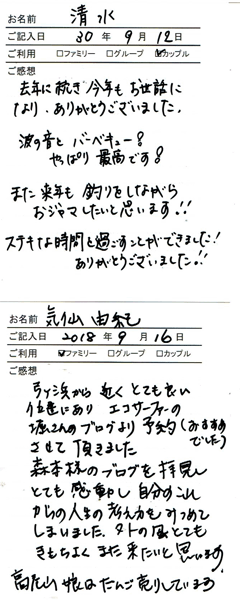 お名前 清水
ご記入日 30年9月12日
ご利用 □ファミリー □グループ ☑カップル
ご感想
去年に続き今年もお世話に
なり、ありがとうございました。
波の音とバーベキュー!
やっぱり最高です!
また来年も釣りをしながら
おジャマしたいと思います!!
ステキな時間を過すことができました!
ありがとうございました!!
お名前 気仙 由紀
ご記入日 2018年9月16日
ご利用 ☑ファミリー □グループ □カップル
ご感想
弓ヶ浜から近くとても良い
位置にあり エコサーファーの
堀さんのブログより予約(おすすめ
でした)
させて頂きました
森本様のブログを拝見し
とても感動し自分のこれ
からの人生の考え方をみつめて
しまいました。外の風とても
きもちよく また来たいと思います
娘はだんご売りしています